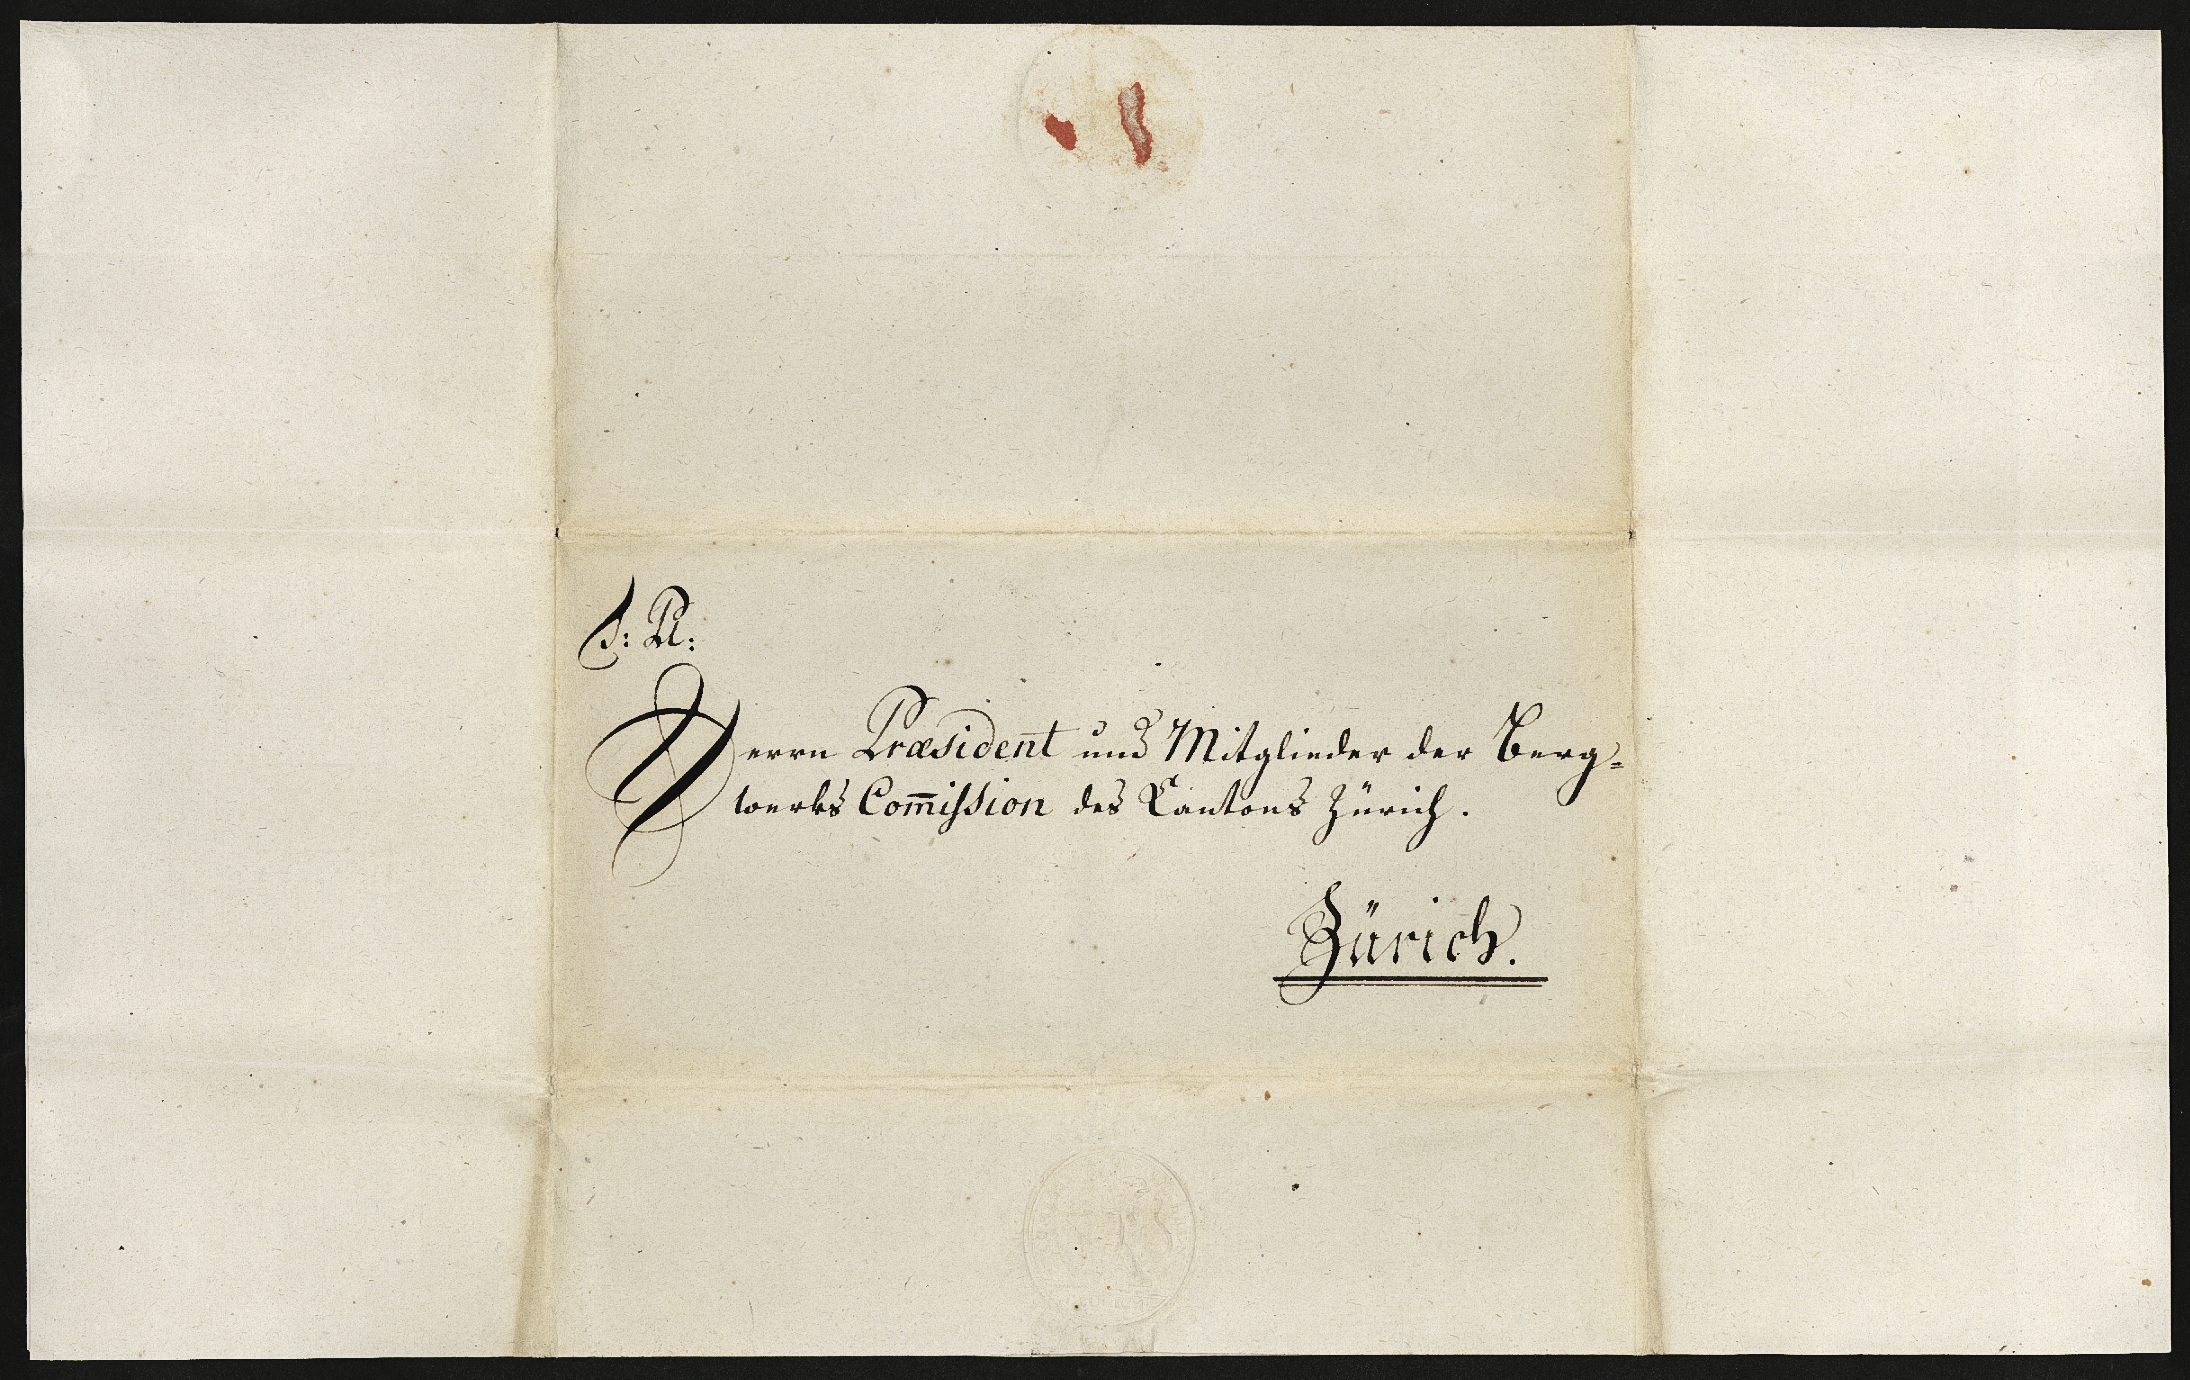 S: Tl:
Herrn Præsident und Mitglieder der Berg-
werks Com̅ission des Cantons Zürich.
Zürich.